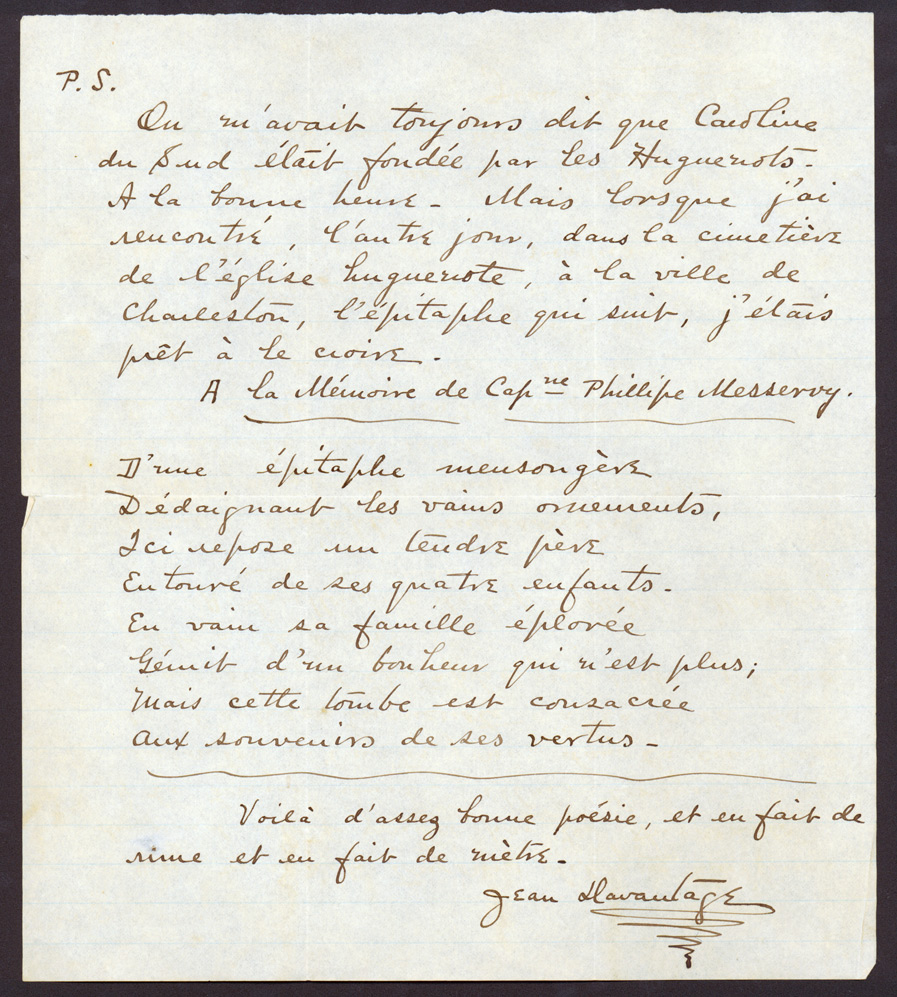 P. S.
On m'avait toujours dit que Caroline
du Sud était fondée par les Huguenots.
A la bonne heure - Mais lorsque j'ai
rencontré, l'autre jour, dans la cimetière
de l'église huguenote, à la ville de
Charleston, l'épitaphe qui suit, j'étais
prêt à le croire.
A la Mémoire de Capne Phillipe Messervy.
D'une épitaphe mensongère
Dédaignant les vains ornements,
Ici repose un tendre père
Entouré de ses quatre enfants.
En vain sa famille éplorée
Gémit d'un bonheur qui n'est plus;
Mais cette tombe est consacrée
Aux souvenirs de ses vertus -
Voilà d'assez bonne poésie, et en fait de
rime et en fait de mètre.
Jean Davantage